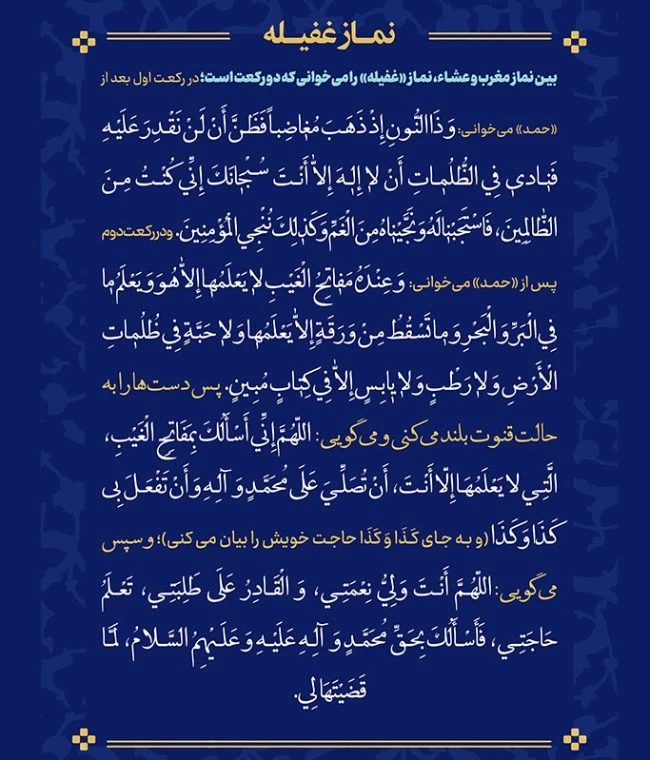 نماز غفیله
بین نماز مغرب و عشاء، نماز «غفیله» را می‌خوانی که دو رکعت است؛ در رکعت اول بعد از
«حمد» می‌خوانی: وَ ذَا النُّونِ إِذْ ذَهَبَ مُغاضِباً فَظَنَّ أَنْ لَنْ نَقْدِرَ عَلَيْهِ
فَنادى فِي الظُّلُماتِ أَنْ لا إِلهَ إِلاَّ أَنْتَ سُبْحانَكَ إِنِّي كُنْتُ مِنَ
الظَّالِمِينَ، فَاسْتَجَبْنا لَهُ وَ نَجَّيْناهُ مِنَ الْغَمِّ وَ كَذلِكَ نُنْجِي الْمُؤْمِنِينَ. و در رکعت دوم
پس از «حمد» می‌خوانی: وَ عِنْدَهُ مَفاتِحُ الْغَيْبِ لا يَعْلَمُها إِلاَّ هُوَ وَ يَعْلَمُ ما
فِي الْبَرِّ وَ الْبَحْرِ وَ ما تَسْقُطُ مِنْ وَرَقَةٍ إِلاَّ يَعْلَمُها وَ لا حَبَّةٍ فِي ظُلُماتِ
الْأَرْضِ وَ لا رَطْبٍ وَ لا يابِسٍ إِلاَّ فِي كِتابٍ مُبِينٍ. پس دست‌ها را به
حالت قنوت بلند می‌کنی و می‌گویی: اللّهُمَّ إِنِّي أَسْأَلُكَ بِمَفاتِحِ الْغَيْبِ،
الَّتِي لا يَعْلَمُهَا إِلّا أَنْتَ، أَنْ تُصَلِّيَ عَلَى مُحَمَّدٍ وَ آلِهِ وَ أَنْ تَفْعَلَ بِی
كَذَا وَ كَذَا (و به جای کَذَا وَ کَذَا حاجت خویش را بیان می کنی)؛ و سپس
می‌گویی: اللّهُمَّ أَنْتَ وَلِيُّ نِعْمَتِي، وَ الْقَادِرُ عَلَى طَلِبَتِي، تَعْلَمُ
حَاجَتِي، فَأَسْأَلُكَ بِحَقِّ مُحَمَّدٍ وَ آلِهِ عَلَيْهِ وَ عَلَيْهِمُ السَّلامُ، لَمَّا
قَضَيْتَهَا لِي.